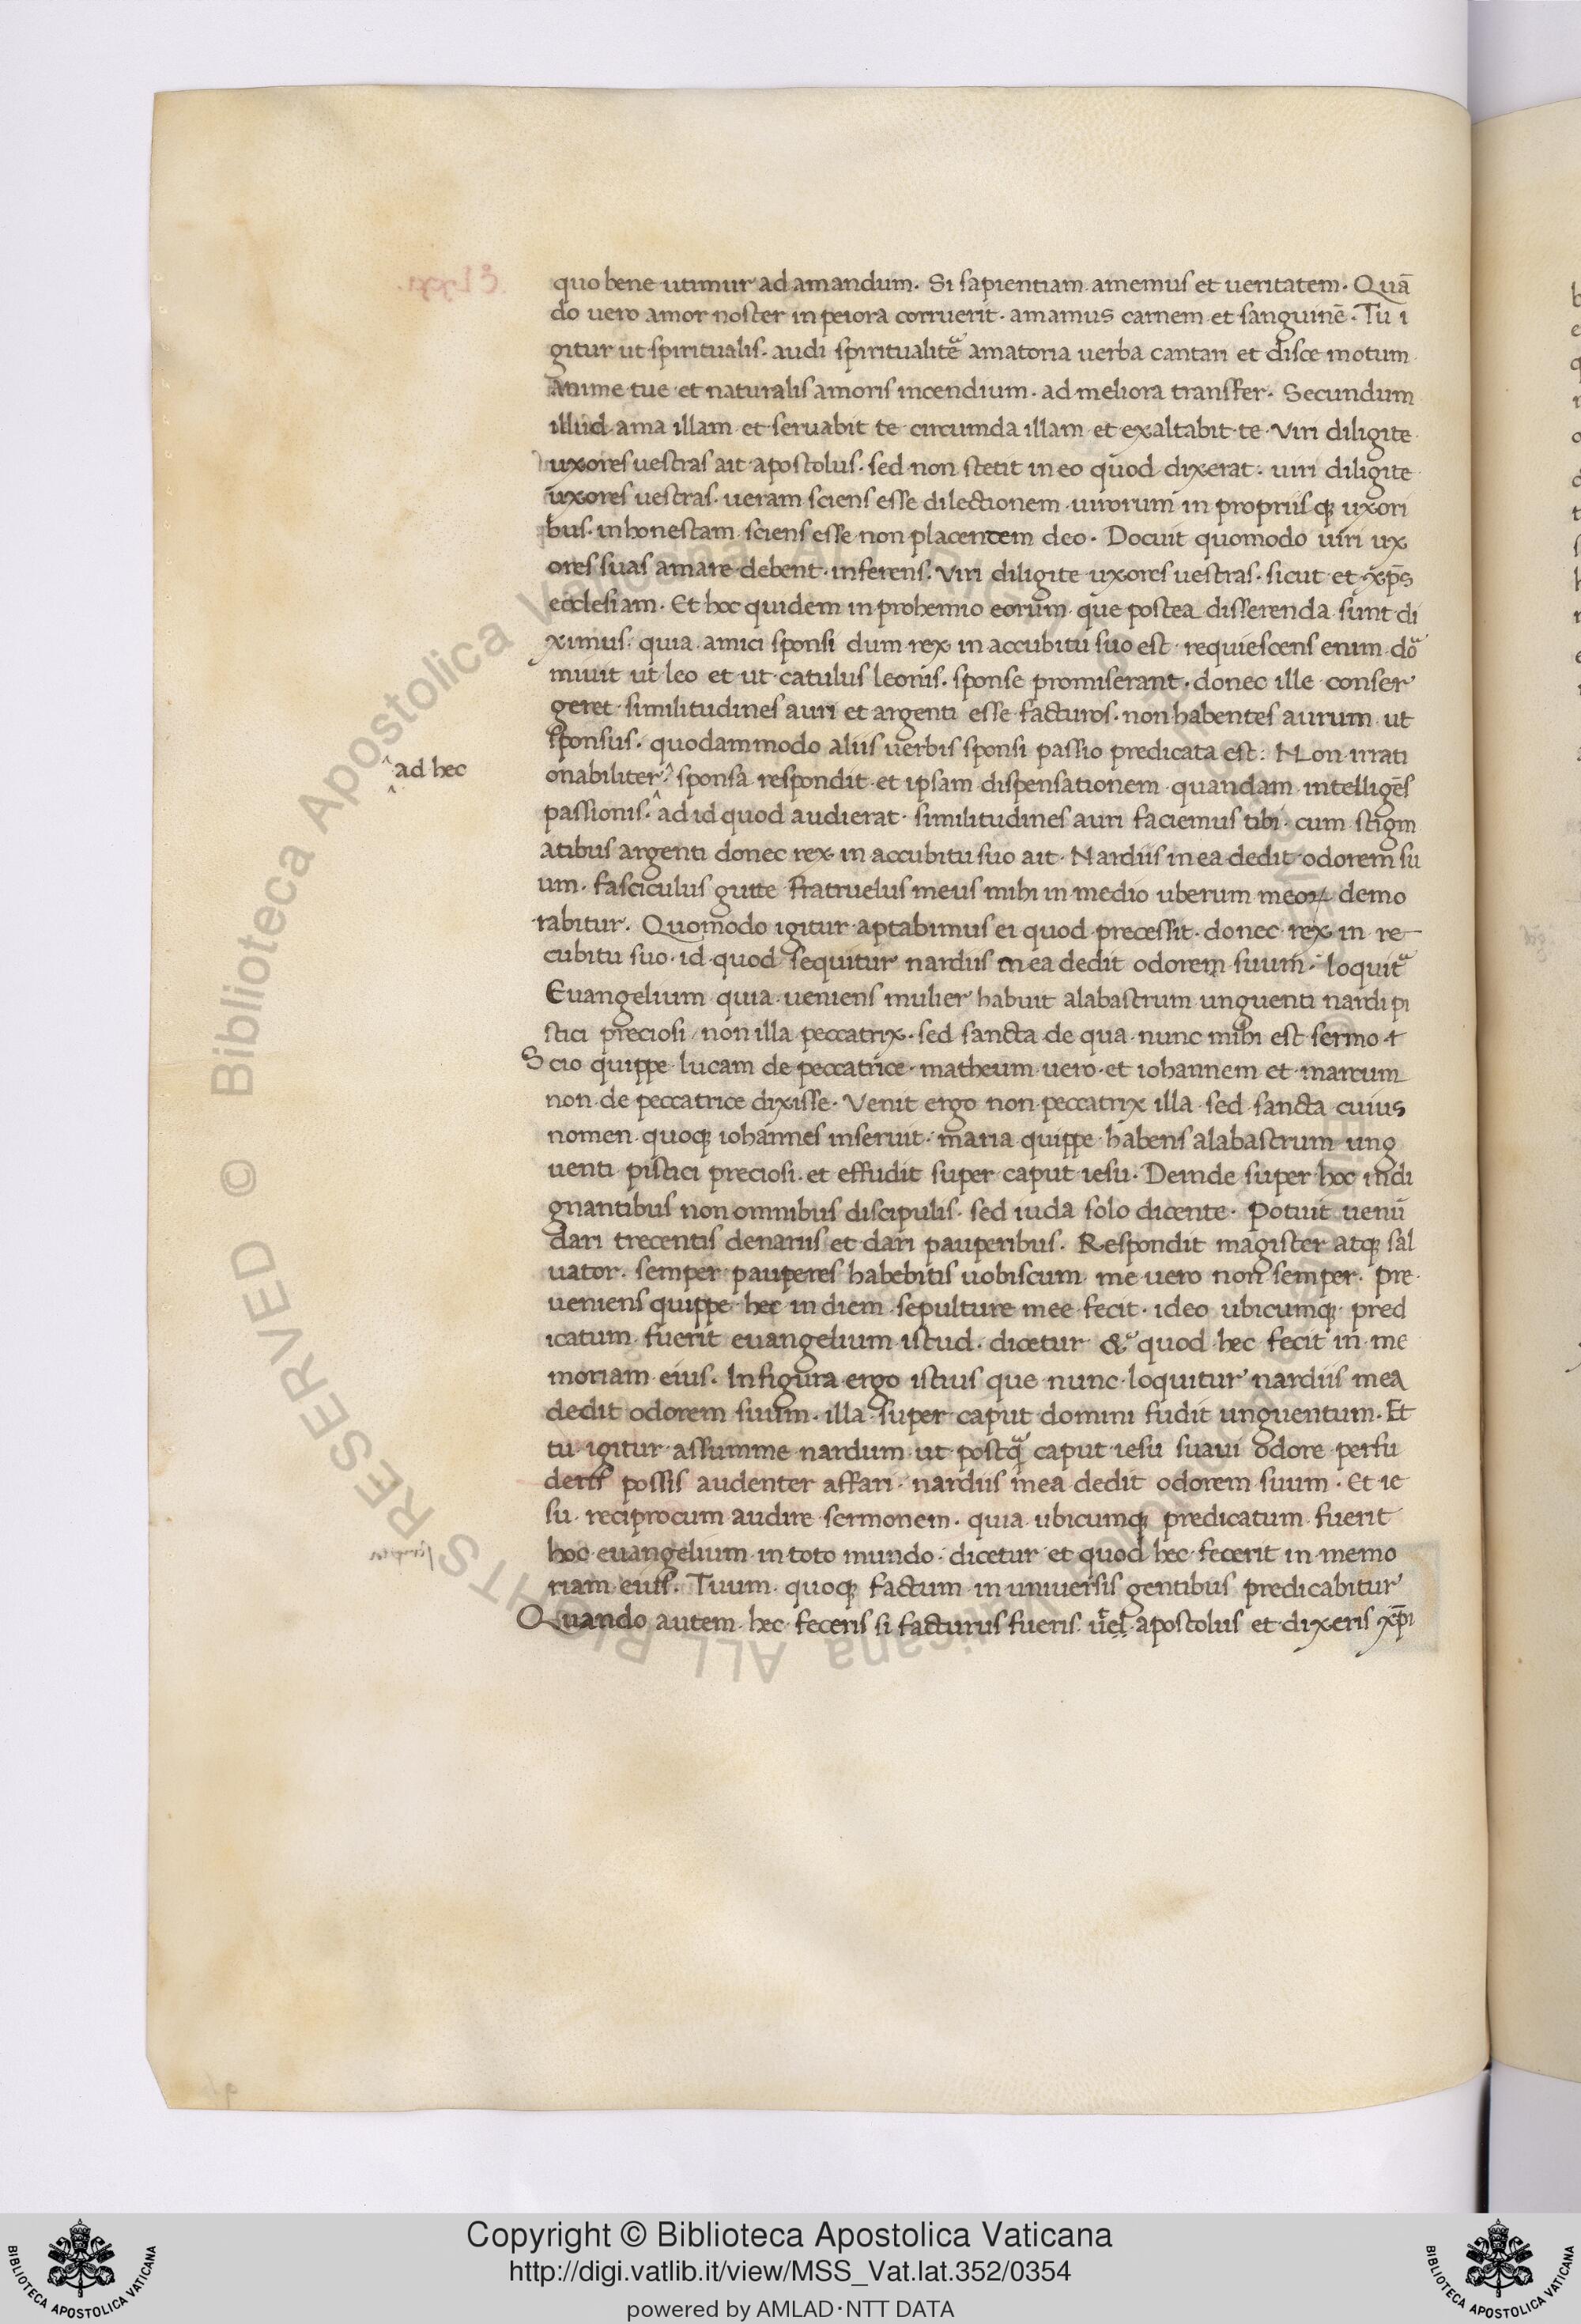 quo bene utimur ad amandum. Si sapientiam amemus et ueritatem. Quā
do uero amor noster in peiora corruerit. amamus carnem et sanguinē. Tu i
gitur ut spiritualis. audi spiritualitē amatoria uerba cantari et disce motum
anime tue et naturalis amoris incendium. ad meliora transfer. Secundum
illud ama illam et seruabit te circumda illam et exaltabit te. Viri diligite
uxores uestras ait apostolus. sed non stetit in eo quod dixerat. uiri diligite
uxores uestras. ueram sciens esse dilectionem uirorum in propriis qȝ uxori
bus. inhonestam sciens esse non placentem deo. Docuit quomodo uiri ux
ores suas amare debent. inferens. Viri diligite uxores uestras. sicut et xp̄s
ecclesiam. Et hoc quidem in prohemio eorum que postea disserenda sunt di
ximus. quia amici sponsi dum rex in accubitu suo est requiescens enim do᷑
miuit ut leo et ut catulus leonis. sponse promiserant. donec ille conser
geret similitudines auri et argenti esse facturos. non habentes aurum ut
sponsus. quodammodo aliis uerbis sponsi passio predicata est. Non irrati
^ad hec
onabiliter^ sponsa respondit et ipsam dispensationem quandam intelligēs
passionis. ad id quod audierat. similitudines auri faciemus tibi. cum stigm
atibus argenti donec rex in accubitu suo ait. Nardus mea dedit odorem su
um. fasciculus gutte fratruelus meus mihi in medio uberum meoꝝ demo
rabitur. Quomodo igitur aptabimus ei quod precessit. donec rex in re
cubitu suo. id quod sequitur nardus mea dedit odorem suum. loquit᷑
Euangelium quia ueniens mulier habuit alabastrum unguenti nardi pi
stici preciosi non illa peccatrix. sed sancta de qua nunc mihi est sermo
Scio quippe lucam de peccatrice. matheum uero et iohannem et marcum
non de peccatrice dixisse. Venit ergo non peccatrix illa sed sancta cuius
nomen quoqȝ iohannes inseruit. maria quippe habens alabastrum ung
uenti pistici preciosi. et effudit super caput iesu. Deinde super hoc indi
gnantibus non omnibus discipulis. sed iuda solo dicente. Potuit uenū
dari trecentis denariis et dari pauperibus. Respondit magister atqȝ sal
uator. semper pauperes habebitis uobiscum me uero non semper. pre
ueniens quippe hec in diem sepulture mee fecit. ideo ubicumqȝ pred
icatum fuerit euangelium istud. dicetur & quod hec fecit in me
moriam eius. In figura ergo istius que nunc loquitur nardus mea
dedit odorem suum. illa super caput domini fudit unguentum. Et
tu igitur assumme nardum ut postq̄ caput iesu suaui odore perfu
deris possis audenter affari. nardus mea dedit odorem suum. Et ie
su reciprocum audire sermonem. quia ubicumqȝ predicatum fuerit
hoc euangelium in toto mundo. dicetur et quod hec fecerit in memo
riam eius. Tuum quoqȝ factum in uniuersis gentibus predicabitur
Quando autem hec feceris si facturus fueris uel apostolus et dixeris xp̄i
© Biblioteca Apostolica Vaticana ALL RIGHTS RESERVED
BIBLIOTECA APOSTOLICA VATICANA
Copyright © Biblioteca Apostolica Vaticana
http://digi.vatlib.it/view/MSS_Vat.lat.352/0354
powered by AMLAD·NTT DATA
BIBLIOTECA APOSTOLICA VATICANA